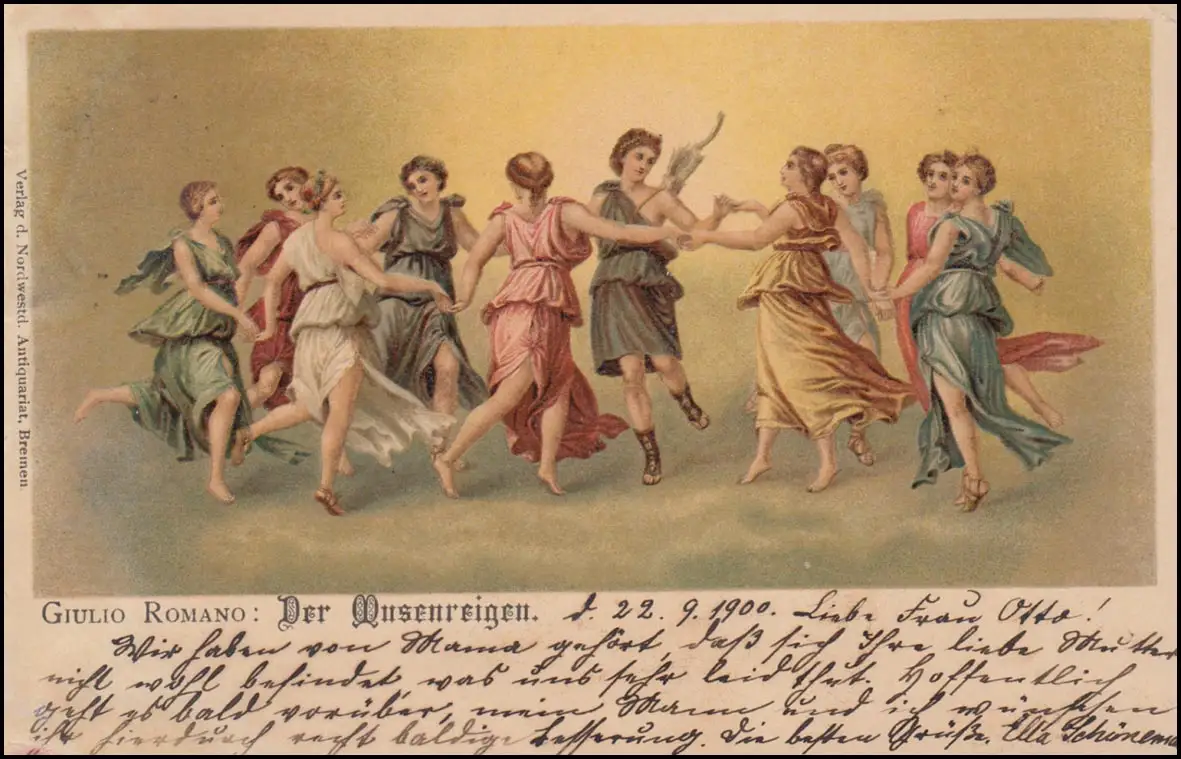 Verlag d. Nordwestd. Antiquariat, Bremen.
GIULIO ROMANO: Der Musenreigen. d. 22. 9. 1900. Liebe Frau Otto!
Wir haben von Mama gehört, daß sich Ihre liebe Mutter
nicht wohl befindet was uns sehr leid thut. Hoffentlich
geht es bald vorüber, mein Mann und ich wünschen
hierdurch recht baldige Besserung. Die besten Grüße. Ella